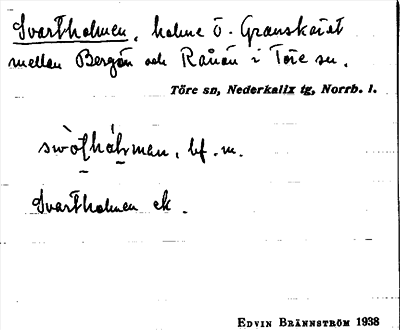 Svartholmen, holme ö. Granskäret
mellan Bergön och Rånön i Töre sn.
Töre sn, Nederkalix tg, Norrb. l.
bf. m.
Svartholmen ek.
EDVIN BRÄNNSTRÖM 1938